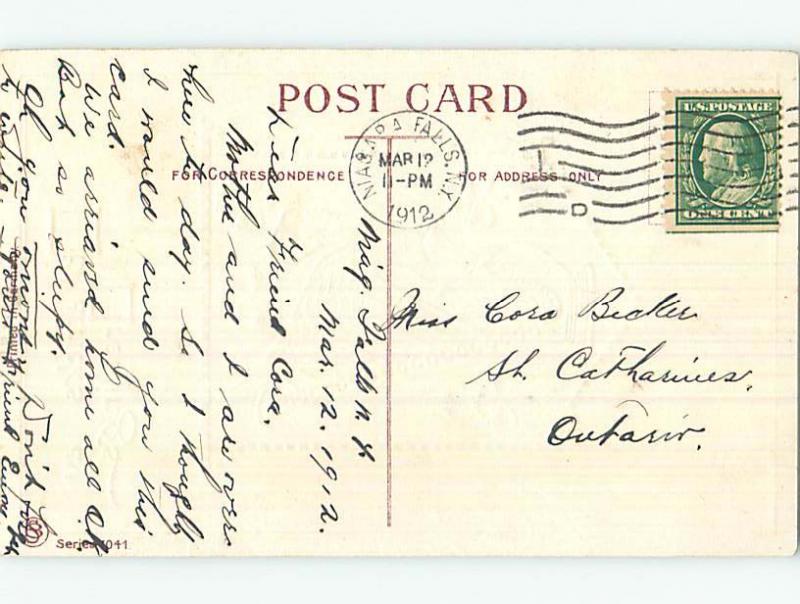 POST CARD
FOR CORRESPONDENCE
FOR ADDRESS ONLY
NIAGARA FALLS, N.Y.
MAR 12
11-PM
1912
D
U.S. POSTAGE
ONE CENT
Miss Cora Becker
St. Catharines.
Ontario.
Niag Falls N.Y
Mar. 12. 1912.
Dear Friend Cora.
Mother and I are over
here to day. So I thought
I would send you this
card.
We arrived home all O.K
But so sleepy.
Oh you Don't
to write. Friend
Series 1041